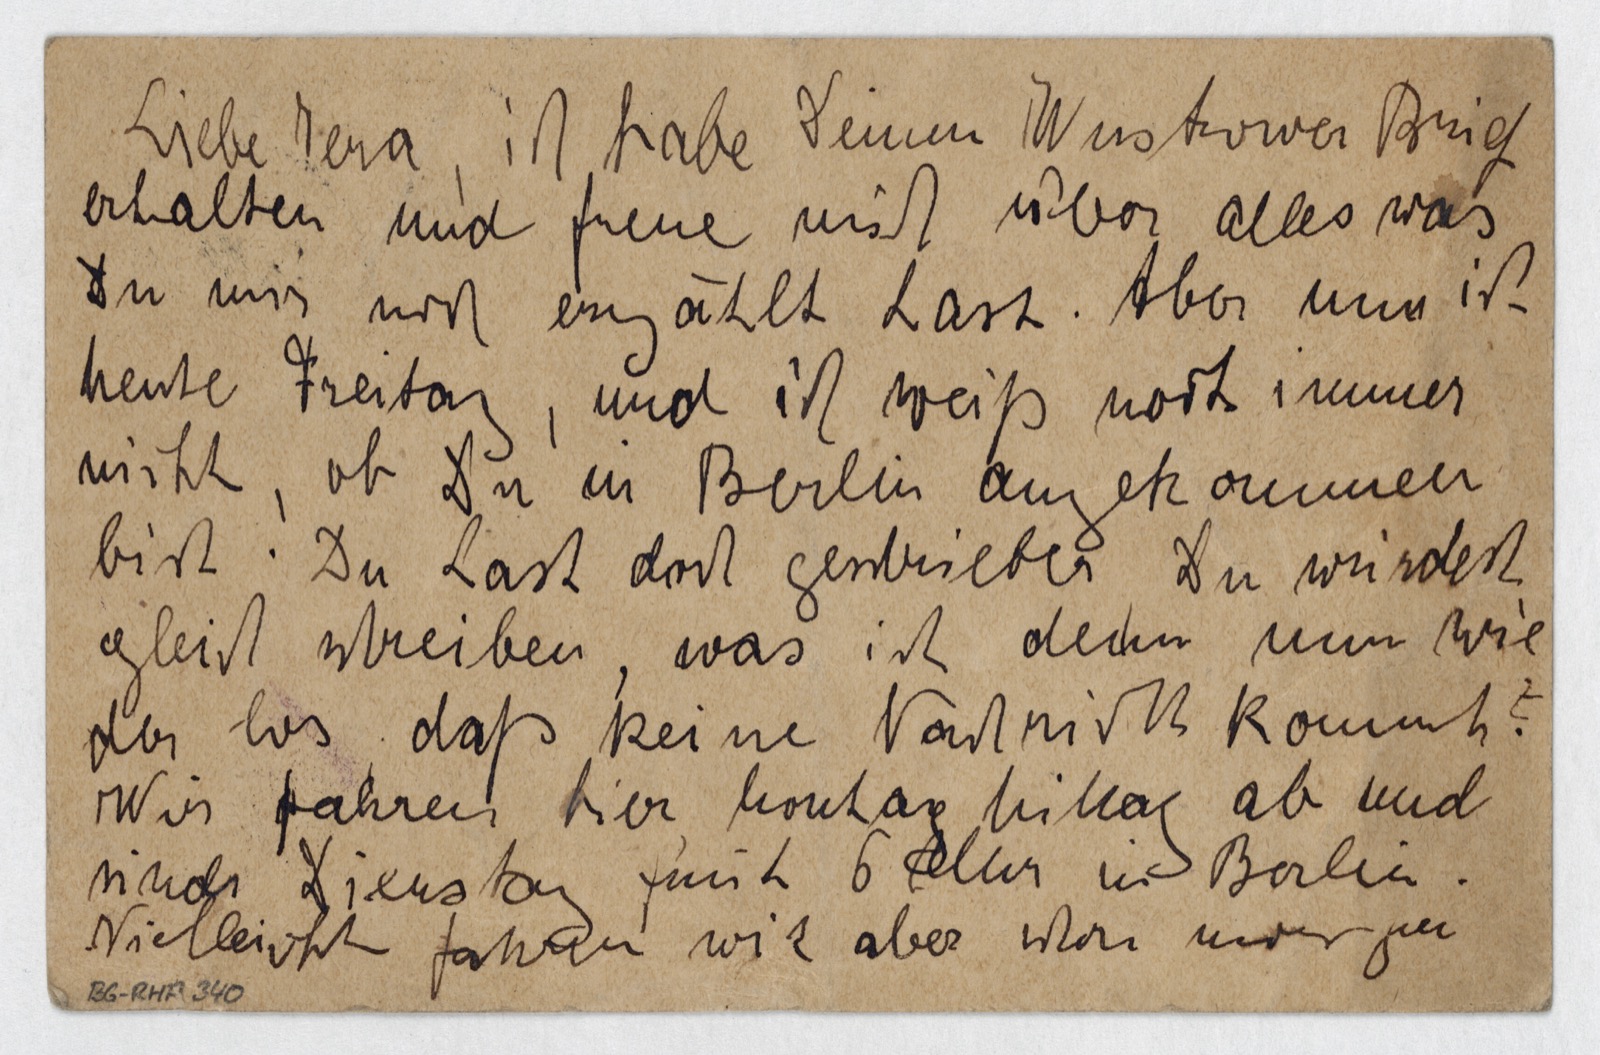 Liebe Vera, ich habe Deinen Wustrower Brief
erhalten und freue mich über alles was
Du mir noch erzählt hast. Aber nun ist
heute Freitag, und ich weiß noch immer
nicht, ob Du in Berlin angekommen
bist. Du hast doch geschrieben Du würdest
gleich schreiben, was ist denn nun wie
der los, daß keine Nachricht kommt?
Wir fahren hier Montag Mittag ab und
sind Dienstag früh 6 Uhr in Berlin.
Vielleicht fahren wir aber schon morgen
BG-RHA 340